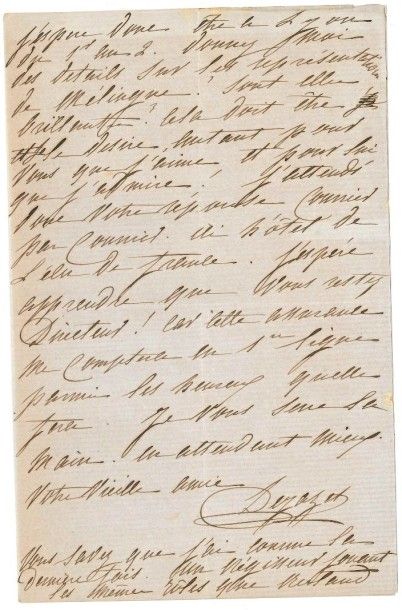 J'espère donc être à Lyon
du 1er au 2. donnez moi
des détails sur les représentations
de Mélingue. sont elle
brillantes? cela doit être je
le désire, autant pour
vous que j'aime et pour lui
que j'admire! J'attends
donc votre réponse courrier
par courrier. à hôtel de
L'écu de france. J'espère
apprendre que vous restez
Directeur! car cette assurance
me comptera en 1ere ligne
parmi les heureux quelle
fera Je vous serre la
main. en attendant mieux.
votre vieille amie
Dejazet
vous savez que j'ai comme la
dernière fois un régiment jouant
les même rôles que